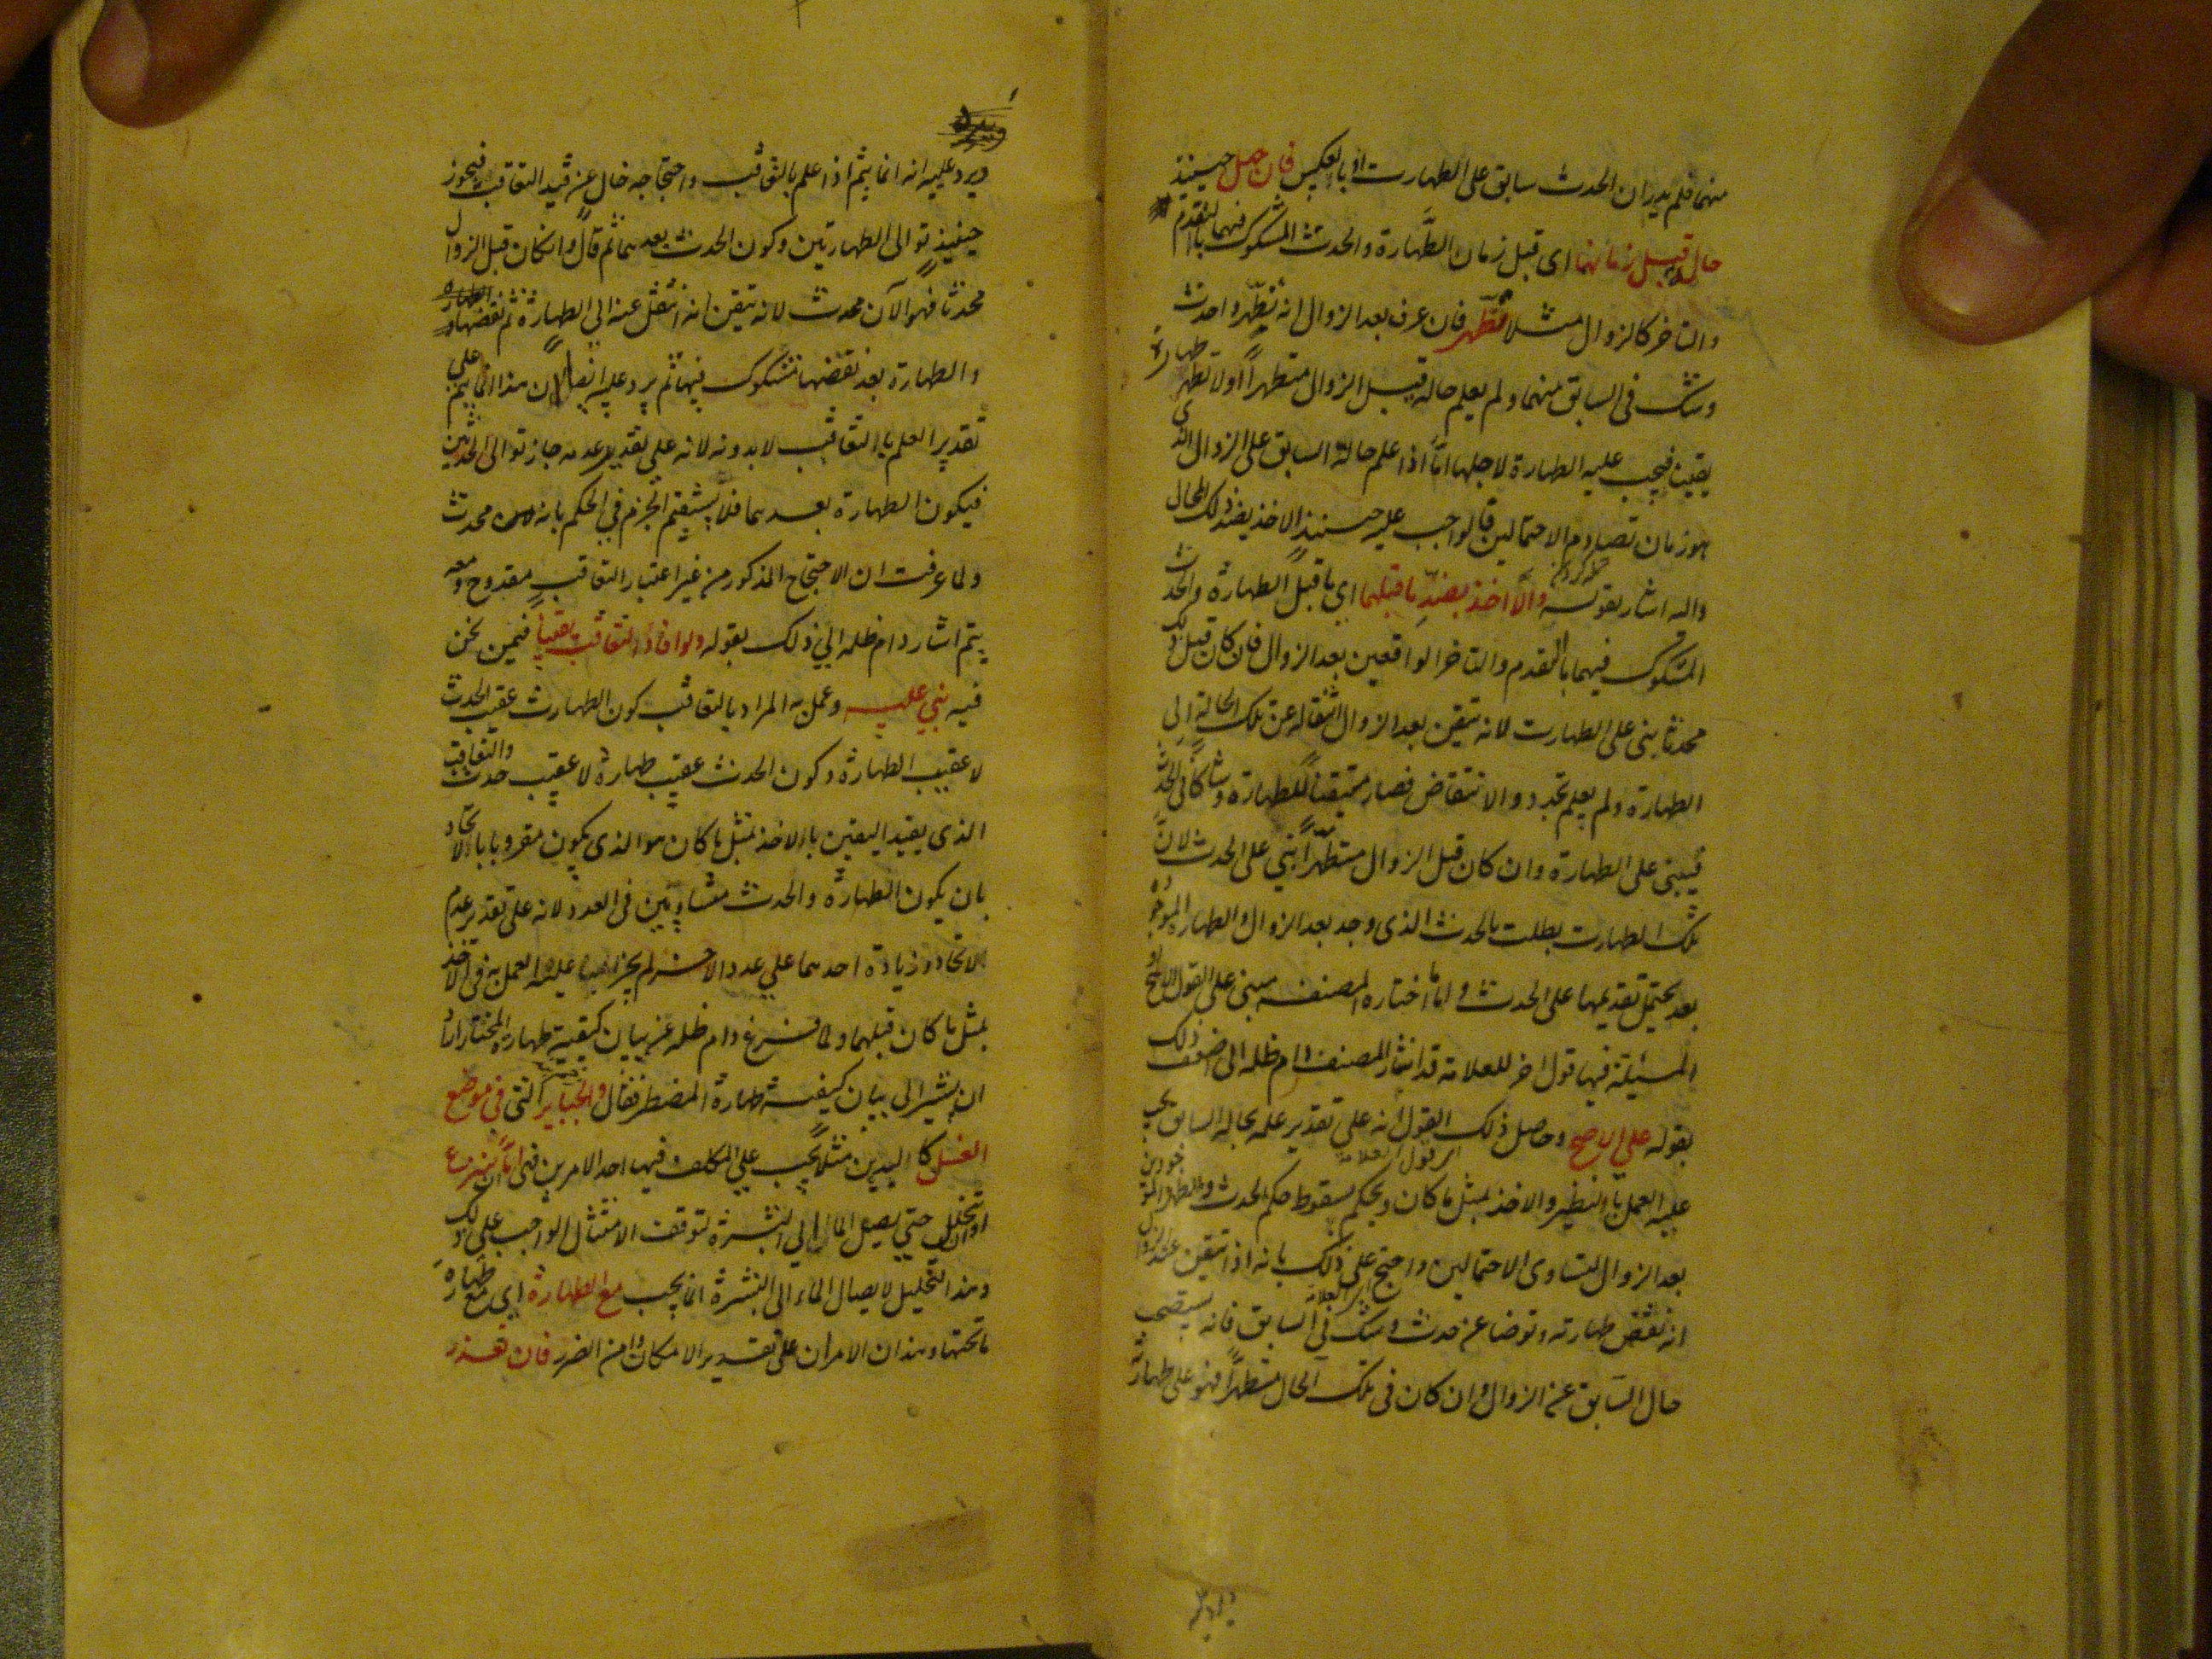 منهما فلم يدر ان الحدث سابق على الطهارت او بالعكس فان جهل حينئذ
حاله قبل زمانهما اى قبل زمان الطهارة والحدث المشكوك فيهما بالتقدم
والتاخر كالزوال مثلا تطهر فان عرف بعد الزوال انه تطهر واحدث
وشك فى السابق منهما ولم يعلم حاله قبل الزوال متطهرا اولا تطهر
يقينا فيجب عليه الطهارة لاجلها اما اذا علم حالة السابق على الزوال الذى
هو زمان تصادم الاحتمالين فالواجب عليه حينئذ الاخذ بضد ذلك الحال
واليه اشار بقوله والا اخذ بضد ما قبلهما اى ما قبل الطهارة والحدث
المشكوك فيهما بالتقدم والتاخر الواقعين بعد الزوال فان كان قبل ذلك
محدثا بنى على الطهارت لانه تيقن بعد الزوال انتقاله عن تلك الحالة الى
الطهارة ولم يعلم تجدد الانتقاض فصار متيقنا للطهارة وشاكا فى الحدث
فيبنى على الطهارة وان كان قبل الزوال متطهرا بنى على الحدث لان
تلك الطهارت بطلت بالحدث الذى وجد بعد الزوال والطهارة الموجودة
بعد يحتمل تقديمها على الحدث و اما ما اختاره المصنف مبنى على القول الاصح
المسئلة فيها قول اخر للعلامة قد اشار المصنف دام ظله الى ضعف ذلك
بقوله على الاصح وحاصل ذلك القول انه على تقدير علمه بحاله السابق يجب
عليه العمل بالنظير والاخذ بمثل ما كان ويحكم بسقوط حكم الحدث والطهر
بعد الزوال لتساوى الاحتمالين واحتج على ذلك بانه اذا تيقن عند الزوال
انه نقض طهارته وتوضا عن حدث وشك فى السابق فانه يستصحب
حال السابق عن الزوال وان كان فى تلك الحال متطهرا فهو على طهارته
ويرد عليه انه انما يتم اذا علم بالتعاقب واحتجاجه خال عن قيد التعاقب فيجوز
حينئذ توالى الطهارتين وكون الحدث بعدهما ثم قال وان كان قبل الزوال
محدثا فهو الآن محدث لانه تيقن انه انتقل عنه الى الطهارة ثم نقضها
والطهارة بعد نقضها مشكوك فيها ثم يرد عليه ايضا ان هذا انما يتم على
تقدير العلم بالتعاقب لا بدونه لانه على تقدير عدمه جاز توالى الحدثين
فيكون الطهارة بعدهما فلا يستقيم الجزم فى الحكم بانه محدث
ولما عرفت ان الاحتجاج المذكور من غير اعتبار التعاقب مقدوح ومعه
يتم اشار دام ظله الى ذلك بقوله ولو افاد التعاقب يقينا فيمن نحن
فيه بنى عليه وعمل به المراد بالتعاقب كون الطهارت عقيب الحدث
لا عقيب الطهارة وكون الحدث عقيب طهارة لا عقيب حدث والتعاقب
الذى يفيد اليقين بالاخذ بمثل ما كان هو الذى يكون مقرونا بالاتحاد
بان يكون الطهارة والحدث متساويتين فى العدد لانه على تقدير عدم
الاتحاد وزيادة احدهما على عدد الاخر لم يجز عليه العمل به فى الاخذ
بمثل ما كان قبلهما ولما فرغ دام ظله عن بيان كيفية طهارة المختار اراد
ان يشير الى بيان كيفية طهارة المضطر فقال والجباير التى فى موضع
الغسل كاليدين مثلا يجب على المكلف فيها احد الامرين فهى اما ان ينزع
او ان يخلل حتى يصل الماء الى البشرة لتوقف الامتثال الواجب على ذلك
وهذا التخليل لايصال الماء الى البشرة انما يجب مع الطهارة اى مع طهارة
ما تحتها وهذان الامران على تقدير الامكان وامن الضرر فان تعذر